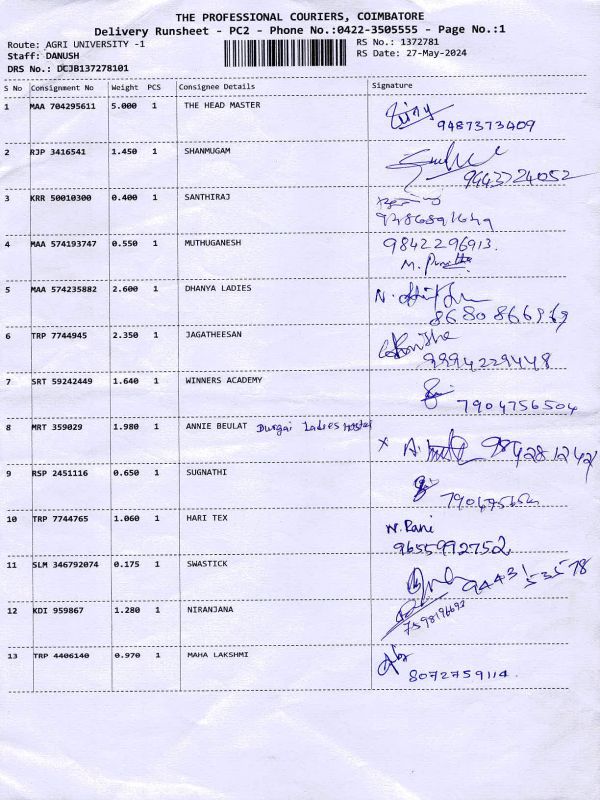 THE PROFESSIONAL COURIERS, COIMBATORE
Delivery Runsheet - PC2 - Phone No.:0422-3505555 - Page No.:1
Route: AGRI UNIVERSITY -1 RS No.: 1372781
Staff: DANUSH RS Date: 27-May-2024
DRS No.: DCJB137278101
S No Consignment No Weight PCS Consignee Details Signature
1 MAA 704295611 5.000 1 THE HEAD MASTER
9487373409
2 RJP 3416541 1.450 1 SHANMUGAM
9443724052
3 KRR 50010300 0.400 1 SANTHIRAJ
4 MAA 574193747 0.550 1 MUTHUGANESH 9842296913.
M.
5 MAA 574235882 2.600 1 DHANYA LADIES N.
6 TRP 7744945 2.350 1 JAGATHEESAN
9994229448
7 SRT 59242449 1.640 1 WINNERS ACADEMY
7904756504
8 MRT 359029 1.980 1 ANNIE BEULAT Durgai Ladies hostel
x A. 9894281242
9 RSP 2451116 0.650 1 SUGNATHI
10 TRP 7744765 1.060 1 HARI TEX N. Rani
9655992752
11 SLM 346792074 0.175 1 SWASTICK
94431 53578
12 KDI 959867 1.280 1 NIRANJANA
7598196693
13 TRP 4406140 0.970 1 MAHA LAKSHMI
8072759114.